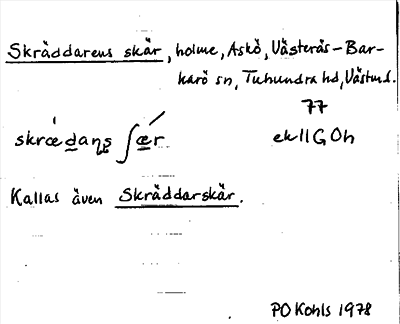 Skräddarens skär, holme, Askö, Västerås-Bar-
karö sn, Tuhundra hd, Västml.
77
ek 11 G 0h
Kallas även Skräddarskär.
PO Kohls 1978